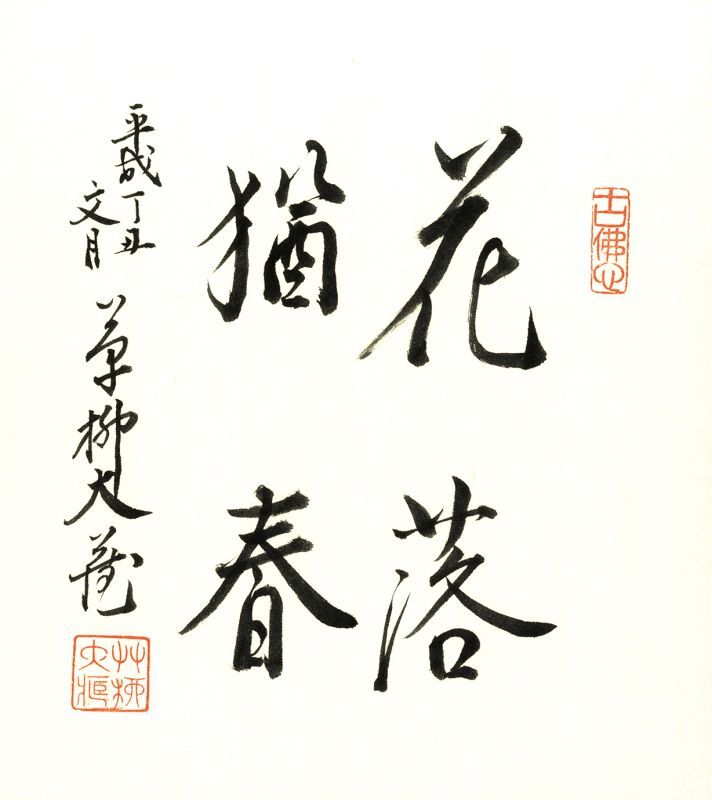 古佛心
花落
猶春
平成丁丑
文月
草柳大蔵
艸柳
大蔵